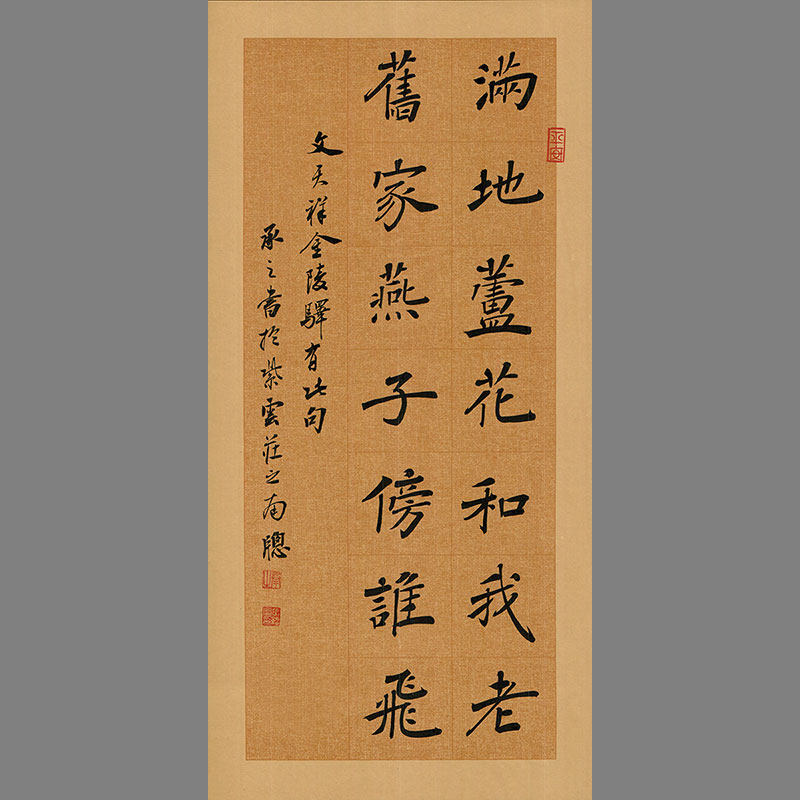 滿地蘆花和我老
舊家燕子傍誰飛
文天祥金陵驛有此句
承之書於紫雲莊之南牕